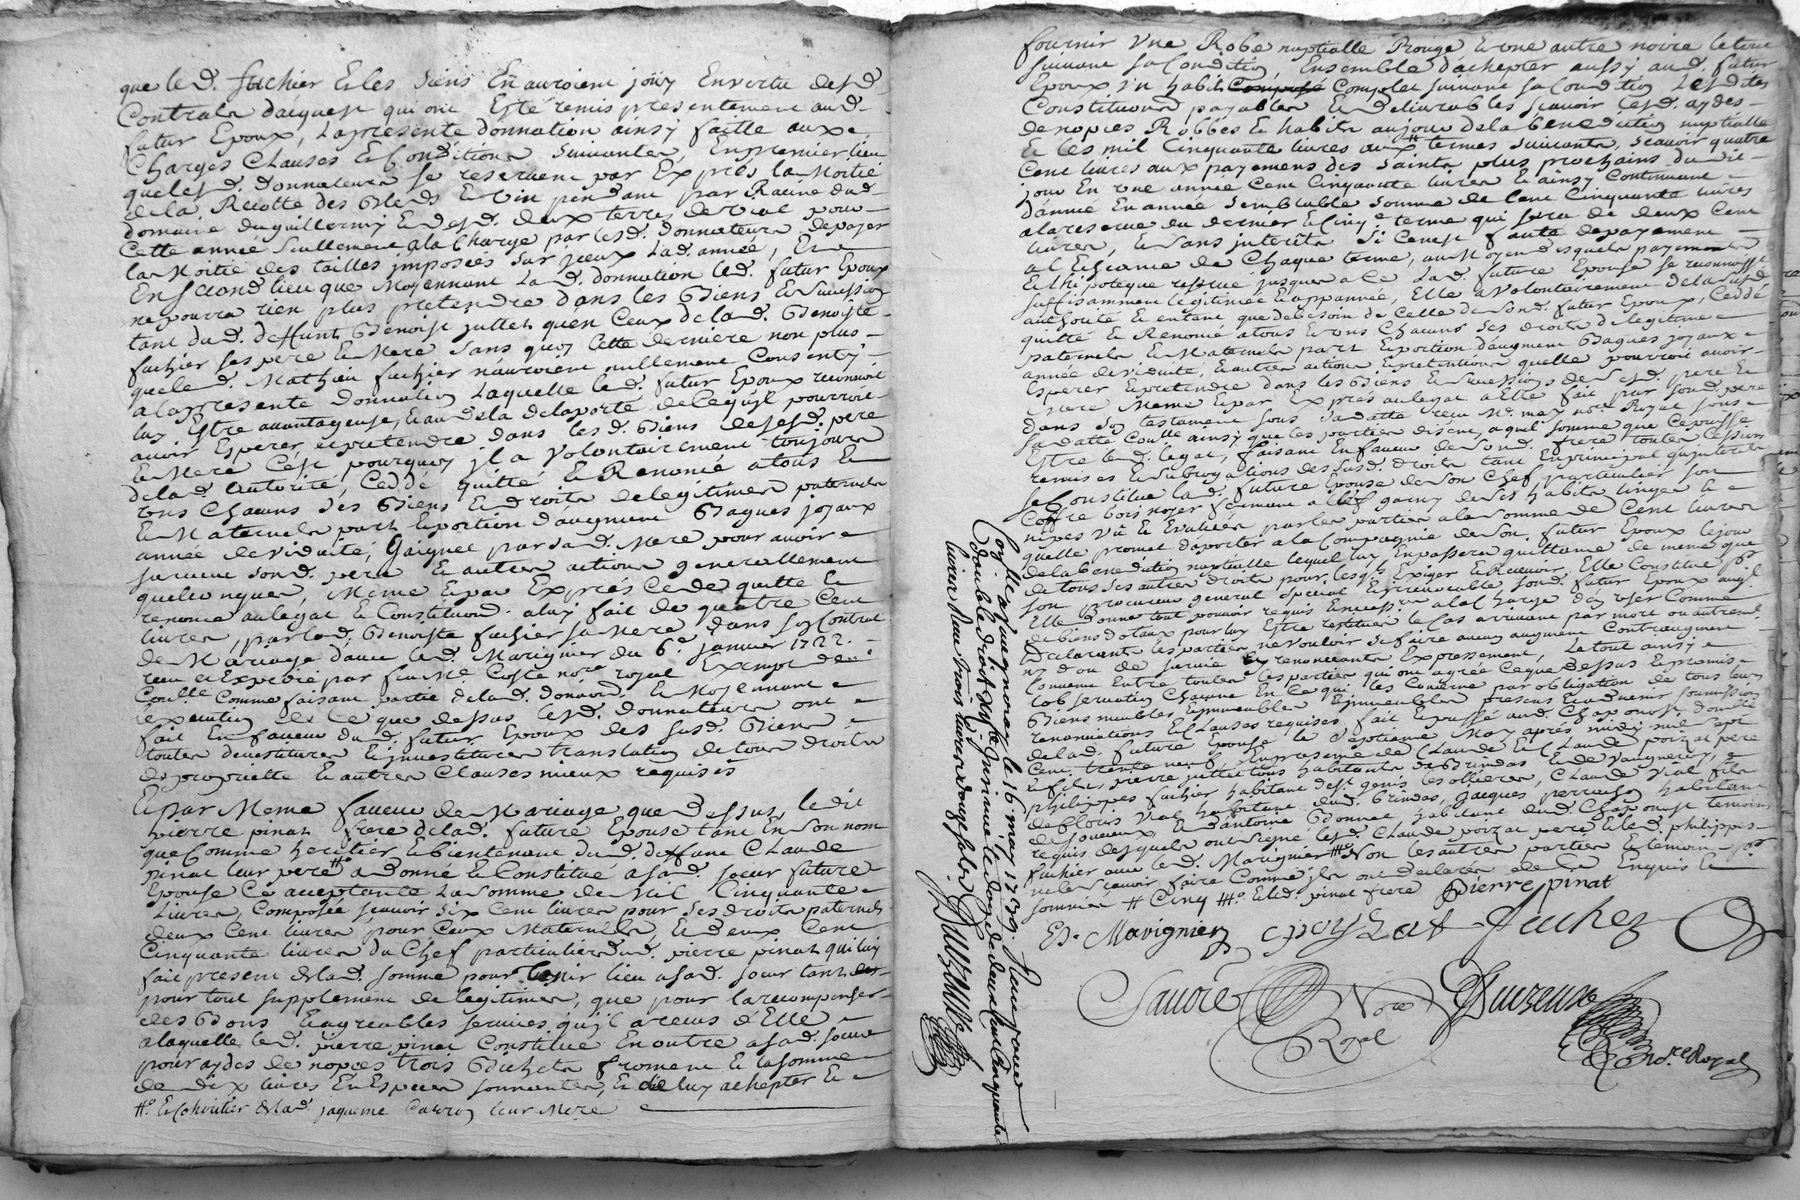 que le d. fuchier et les siens en auroient jouy en vertu desd.
Contrats dacquest qui ont esté remis presentement aud.
futur Epoux, La presente donnation ainsy faitte aux
Charges Clauses et Conditions suivantes, En premier lieu
que lesd. donnateurs se reservent par Exprés la Moitié
de la Recolte des Bleds et vin pendant par Racine dud.
domaine du guillermy et desd. deux terres de vial pour
Cette année seullement a la Charge par lesd. donnateurs de payer
la Moitié des tailles imposées sur jceux lad. année, Et
En second lieu que Moyennant lad. donnation led. futur Epoux
ne pourra rien plus pretendre dans les Biens et succession
tant dud. deffunt Benoist juttet qu'en Ceux de lad. Benoiste
fuchier ses pere et Mere sans quoy Cette derniere non plus
que led. Mathieu fuchier n'auroient nullement Consenty
a la presente donnation Laquelle led. futur Epoux reconnoit
luy Estre avantageuse, et au dela de la porté de ce qu'jl pourroit
avoir Esperer et pretendre dans lesd. Biens de sesd. pere
et Mere C'est pourquoy jl a volontairement toujours
de lad. autorité, Ceddé quitté et Renoncé a tous et
uns Chacuns ses Biens et droits de legitimes paternels
et Maternels part et portion d'augment Bagues joyaux
année de viduité, Gaignée par sad. Mere pour avoir
survecu sond. pere et autres actions generallement
quelconques, Meme et par Exprés Cede quitte et
renonce au legat et Constitution a luy fait de quatre Cent
livres, par lad. Benoiste fuchier sa Mere dans son Contrat
de Mariage d'avec led. Marignier du 6e. janvier 1722.
receu et Expedié par feu Me. Coste nore. royal Exempt de
Coulle Comme faisant partie de lad. donaon. Et Moyennant
l'execution de Ce que dessus lesd. donnateurs ont
fait En faveur dud. futur Epoux des susd. Biens
toutes devestitures et jnvestitures translation de tous droits
de proprieté et autres Clauses mieux requises
Et par Meme faveur de Mariage que dessus, le dit
pierre pinat frere de lad. future Epouse tant En son nom
que Comme heritier et bientenant dud. deffunt Claude
pinat leur pere # a donné et Constitué a sad. soeur future
Epouse Ce acceptante La somme de Mil Cinquante
Livres, Composée scavoir six Cent livres pour ses droits paternels
deux Cent livres pour Ceux Maternels, et deux Cent
Cinquante livres du Chef particulier dud. pierre pinat qui luy
fait present de lad. somme pour tenir lieu a sad. soeur tant
pour tout supplement de legitimes, que pour la recompenser
des Bons et agreables services qu'jl a receus d'Elle
a laquelle led. pierre pinat Constitue En outre a sad. soeur
pour aydes de nopces trois Bichets froment et la somme
de dix livres En Especes sonnantes, et de luy achepter et
# et Cohéritier de lad. jaqueme leur Mere
fournir Une Robe nuptialle Rouge et une autre noire le tout
suivant sa Condition, Ensemble d'achepter aussy aud. futur
Epoux Un habit Complet suivant sa Condition Lesdites
Constitutions payables et delivrables scavoir lesd. aydes
de nopces Robbes et habits au jour de la benediction nuptialle
Et les mil Cinquante livres aux termes suivants, scavoir quatre
Cent livres aux payemens des saints plus prochains du dit
jour En une année Cent Cinquante livres et ainsy Continuant
d'année En année semblable somme de Cent Cinquante livres
a la reserve du dernier et Cinqe. terme qui sera de deux Cent
livres, et sans jnterets si Ce n'est faute de payement
a l'Escheance de Chaque terme, au Moyen desquels payements
et l'hipoteque reservé jusques a ce lad. future Epouse se reconnoit
suffisamment legitimée et appannée, Elle a volontairement de la susd.
authorité et entant que de besoin de Celle de sond. futur Epoux, Ceddé
quitté et Renoncé a tous et uns Chacuns ses droits de legitimes
paternels et Maternels part et portion d'augment Bagues joyaux
année de viduité, et autres actions et pretentions quelle pourroit avoir
Esperer et pretendre dans les Biens et successions de sesd. pere et
Mere Meme et par Exprés au legat a Elle fait par sond. pere
dans son testament sous sa datte receu Me. may nore. Royal sous
sa datte Coullé ainsy que les parties disent, a quel somme que Ce puisse
Estre led. legat, faisant En faveur de sond. frere toutes Cessions
remises et subrogations des susd. droits tant En principal qu'jnterets
se Constitue lad. future Epouse de son Chef particulier son
Coffre bois noyer fermant a clef garny de ses habits linges et
nipes vû et Evalués par les parties a la somme de Cent livres
quelle promet d'aporter a la Compagnie de son futur Epoux le jour
de la benediction nuptialle lequel luy En passera quittance de meme que
de tous ses autres droits pour lesqls. Exiger et Recevoir Elle Constitue pr.
son procureur general special et jrrevocable sond. futur Epoux auql.
Elle donne tout pouvoir requis et necessre. a la Charge d'En user Comme
de biens dotaux pour luy Estre restitués le Cas arrivant par mort ou autrement
declarant les parties ne vouloir se faire aucun augment Contraugment
ny don de survie y renonceants Expressement, Le tout ainsy
Convenu Entre toutes les parties qui ont agréé Ce que dessus et promis
l'observation Chacune En Ce qui les Concerne par obligation de tous leurs
Biens meubles et jmmeubles presens et a venir soumissions
renonciations et Clauses requises, fait et passé aud. Chaponost domlle.
de lad. future Epouse le septieme May aprés midy mil sept
Cent trente neuf, En presence de Claude et Claude poizat pere
et fils, pierre juttet tous habitants de Brindas et de vaugneray,
philippes fuchier habitant de st. genis les ollieres, Claude vial fils
de flouris vial habitant dud. Brindas, jacques perraud habitant
de soucieux et d'antoine Bonnet habitant dud. Chaponost temoins
requis desquels ont signé lesd. Claude poizat pere et led. philippes
fuchier avec le d. Marignier Non les autres parties et temoins pr.
ne le scavoir faire Comme jls ont declarés de ce Enquis et
sommés # Cinq # et led. pinat frere Pierre pinat
E. Marignier cpoyzat Fuchez
Sauvre Nore Royal
Duizeux nore. Royal
Coñllé a Vaugneray le 16 may 1739. Reçu pour
double droit et pour Insinuaon. le d. de deux cent cinquante
livres deux trois livres douze sols Dalzeulle